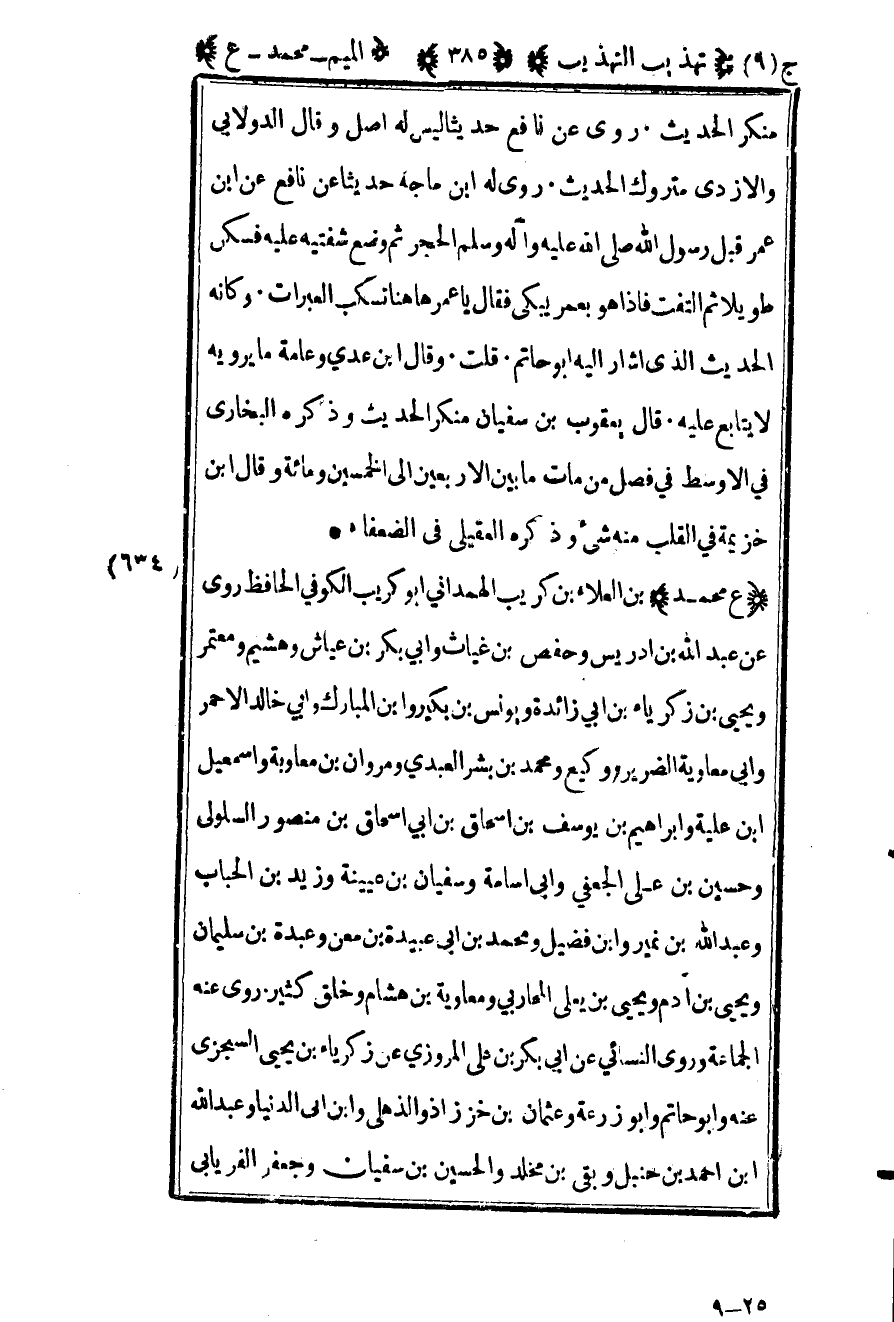 ج (٩) ﴿ تهذيب التهذيب ﴾ ﴿ ٣٨٥ ﴾ ﴿ الميم ـ محمد ـ ع ﴾
منكر الحديث · روى عن نافع حديثا ليس له اصل وقال الدولابي
والازدى متروك الحديث · روى له ابن ماجه حديثا عن نافع عن ابن
عمر قبل رسول الله صلى الله عليه وآله وسلم الحجر ثم وضع شفتيه عليه
طويلا ثم التفت فاذا هو بعمر يبكى فقال يا عمر هاهنا تسكب العبرات · وكانه
الحديث الذى اشار اليه ابو حاتم · قلت · وقال ابن عدي وعامة ما يرويه
لا يتابع عليه · قال يعقوب بن سفيان منكر الحديث وذكره البخارى
في الاوسط في فصل من مات ما بين الاربعين الى الخمسين ومائة وقال ابن
خزيمة في القلب منه شئ وذكره العقيلى فى الضعفاء •
(٦٣٤)
﴿ ع محمـد ﴾ بن العلاء بن كريب الهمداني ابو كريب الكوفي الحافظ روى
عن عبد الله بن ادريس وحفص بن غياث وابي بكر بن عياش وهشيم ومعتمر
ويحيى بن زكرياء بن ابي زائدة ويونس بن بكير وابن المبارك وابي خالد الاحمر
وابي معاوية الضرير ووكيع ومحمد بن بشر العبدي ومروان بن معاوية واسمعيل
ابن علية وابراهيم بن يوسف بن اسحاق بن ابي اسحاق بن منصور السلولى
وحسين بن عـلى الجعفي وابي اسامة وسفيان بن عيينة وزيد بن الحباب
وعبد الله بن نمير وابن فضيل ومحمد بن ابي عبيدة بن معن وعبدة بن سليمان
ويحيى بن آدم ويحيى بن يعلى المحاربي ومعاوية بن هشام وخلق كثير. روى عنه
الجماعة وروى النسائي عن ابي بكر بن على المروزي عن زكرياء بن يحيى السجزى
عنه وابو حاتم وابو زرعة وعثمان بن خرزاذ والذهلى وابن ابى الدنيا وعبد الله
ابن احمد بن حنبل وبقى بن مخلد والحسين بن سفيان وجعفر الفريابى
٩ـ٢٥